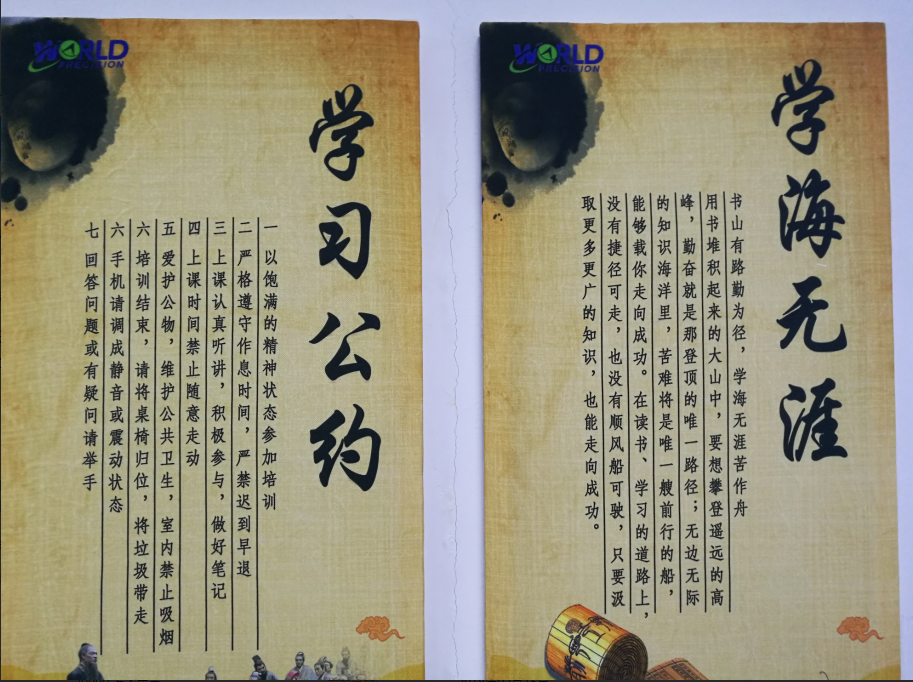 WORLD
PRECISION
学习公约
一 以饱满的精神状态参加培训
二 严格遵守作息时间，严禁迟到早退
三 上课认真听讲，积极参与，做好笔记
四 上课时间禁止随意走动
五 爱护公物，维护公共卫生，室内禁止吸烟
六 培训结束，请将桌椅归位，将垃圾带走
六 手机请调成静音或震动状态
七 回答问题或有疑问请举手
WORLD
PRECISION
学海无涯
书山有路勤为径，学海无涯苦作舟
用书堆积起来的大山中，要想攀登遥远的高
峰，勤奋就是那登顶的唯一路径；无边无际
的知识海洋里，苦难将是唯一艘前行的船，
能够载你走向成功。在读书、学习的道路上，
没有捷径可走，也没有顺风船可驶，只要汲
取更多更广的知识，也能走向成功。